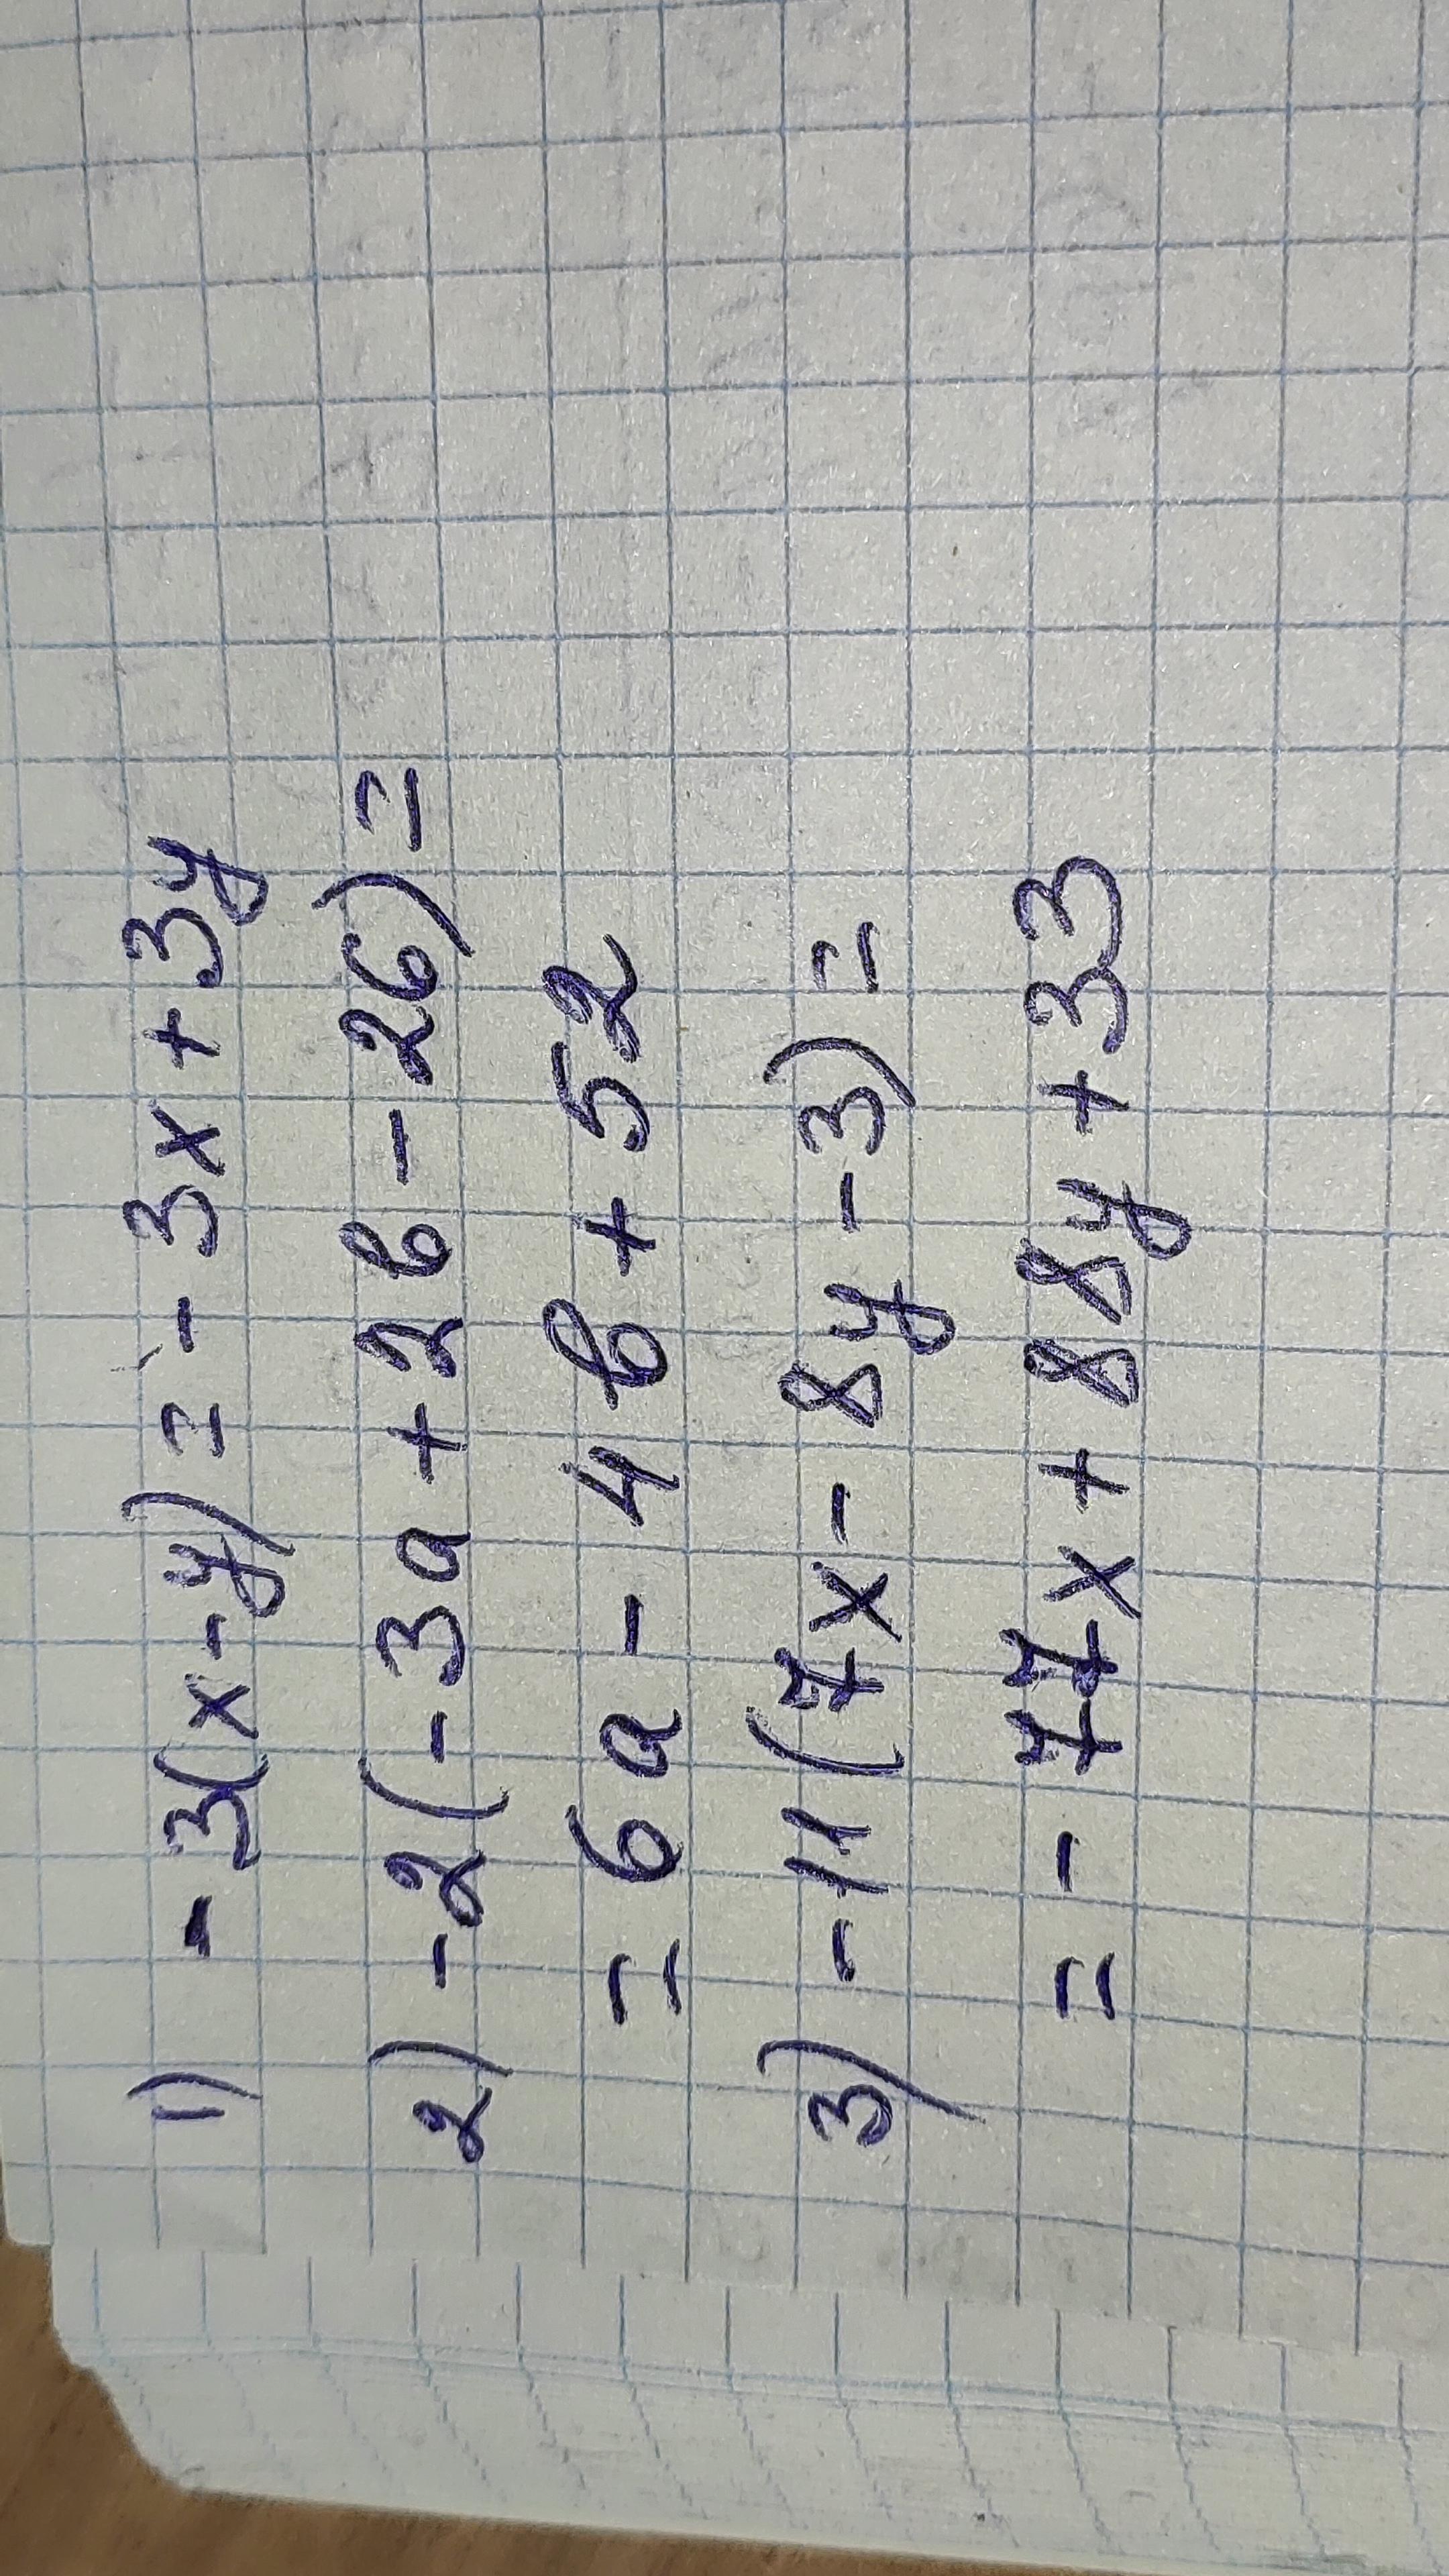 1) -3(x-y) = -3x+3y
2) -2(-3a+2b-26)=
=6a-4b+52
3) -11(7x-8y-3)=
=-77x+88y+33